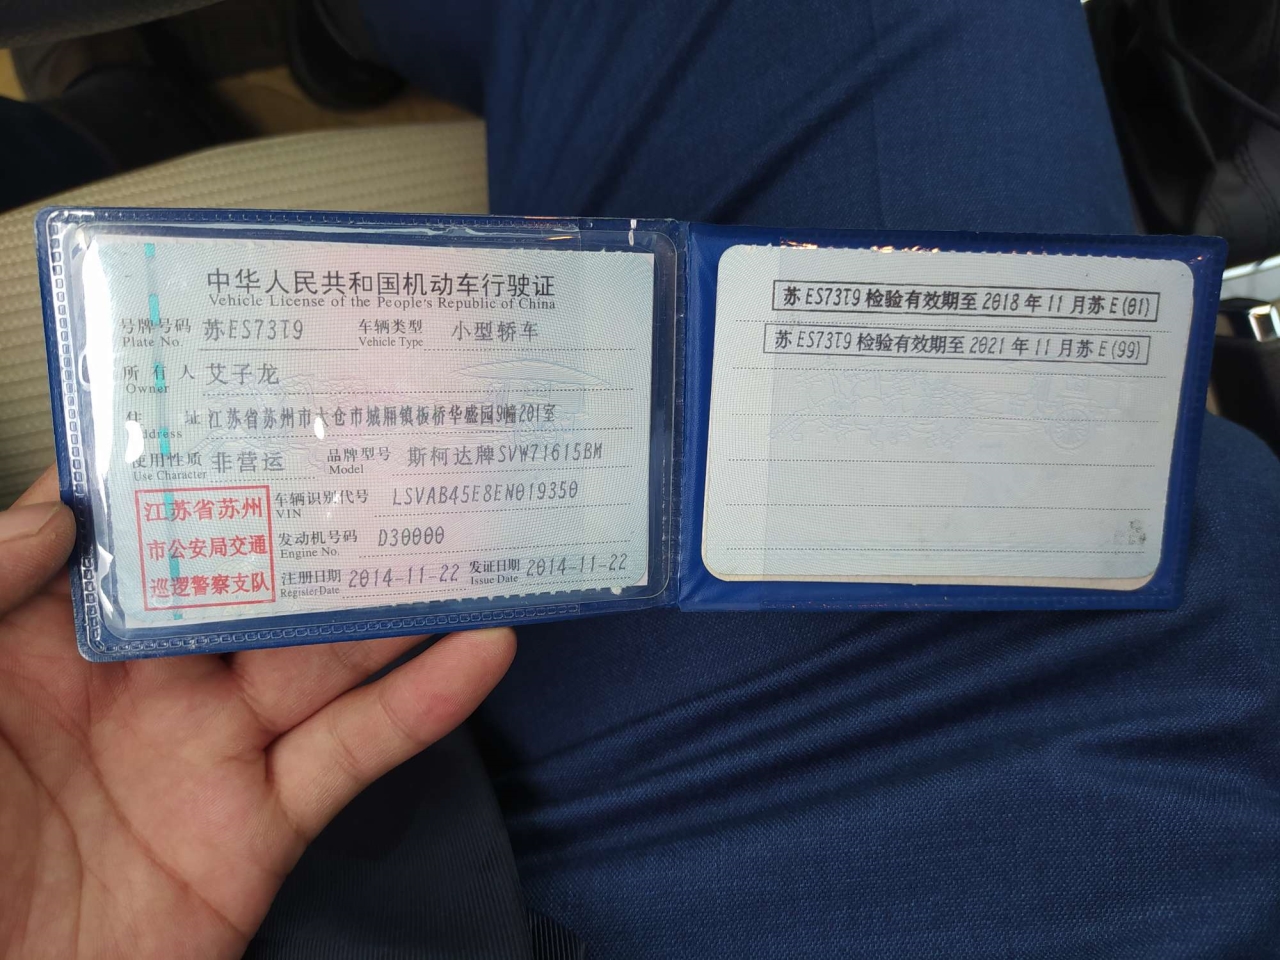 中华人民共和国机动车行驶证
Vehicle License of the People's Republic of China
号牌号码 苏ES73T9 车辆类型 小型轿车
Plate No. Vehicle Type
所有人 艾子龙
Owner
住址 江苏省苏州市太仓市城厢镇板桥华盛园9幢201室
Address
使用性质 非营运 品牌型号 斯柯达牌SVW71615BM
Use Character Model
车辆识别代号 LSVAB45E8EN019350
VIN
发动机号码 D30000
Engine No.
注册日期 2014-11-22 发证日期 2014-11-22
Register Date Issue Date
江苏省苏州
市公安局交通
巡逻警察支队
苏ES73T9检验有效期至2018年11月苏E(01)
苏ES73T9检验有效期至2021年11月苏E(99)